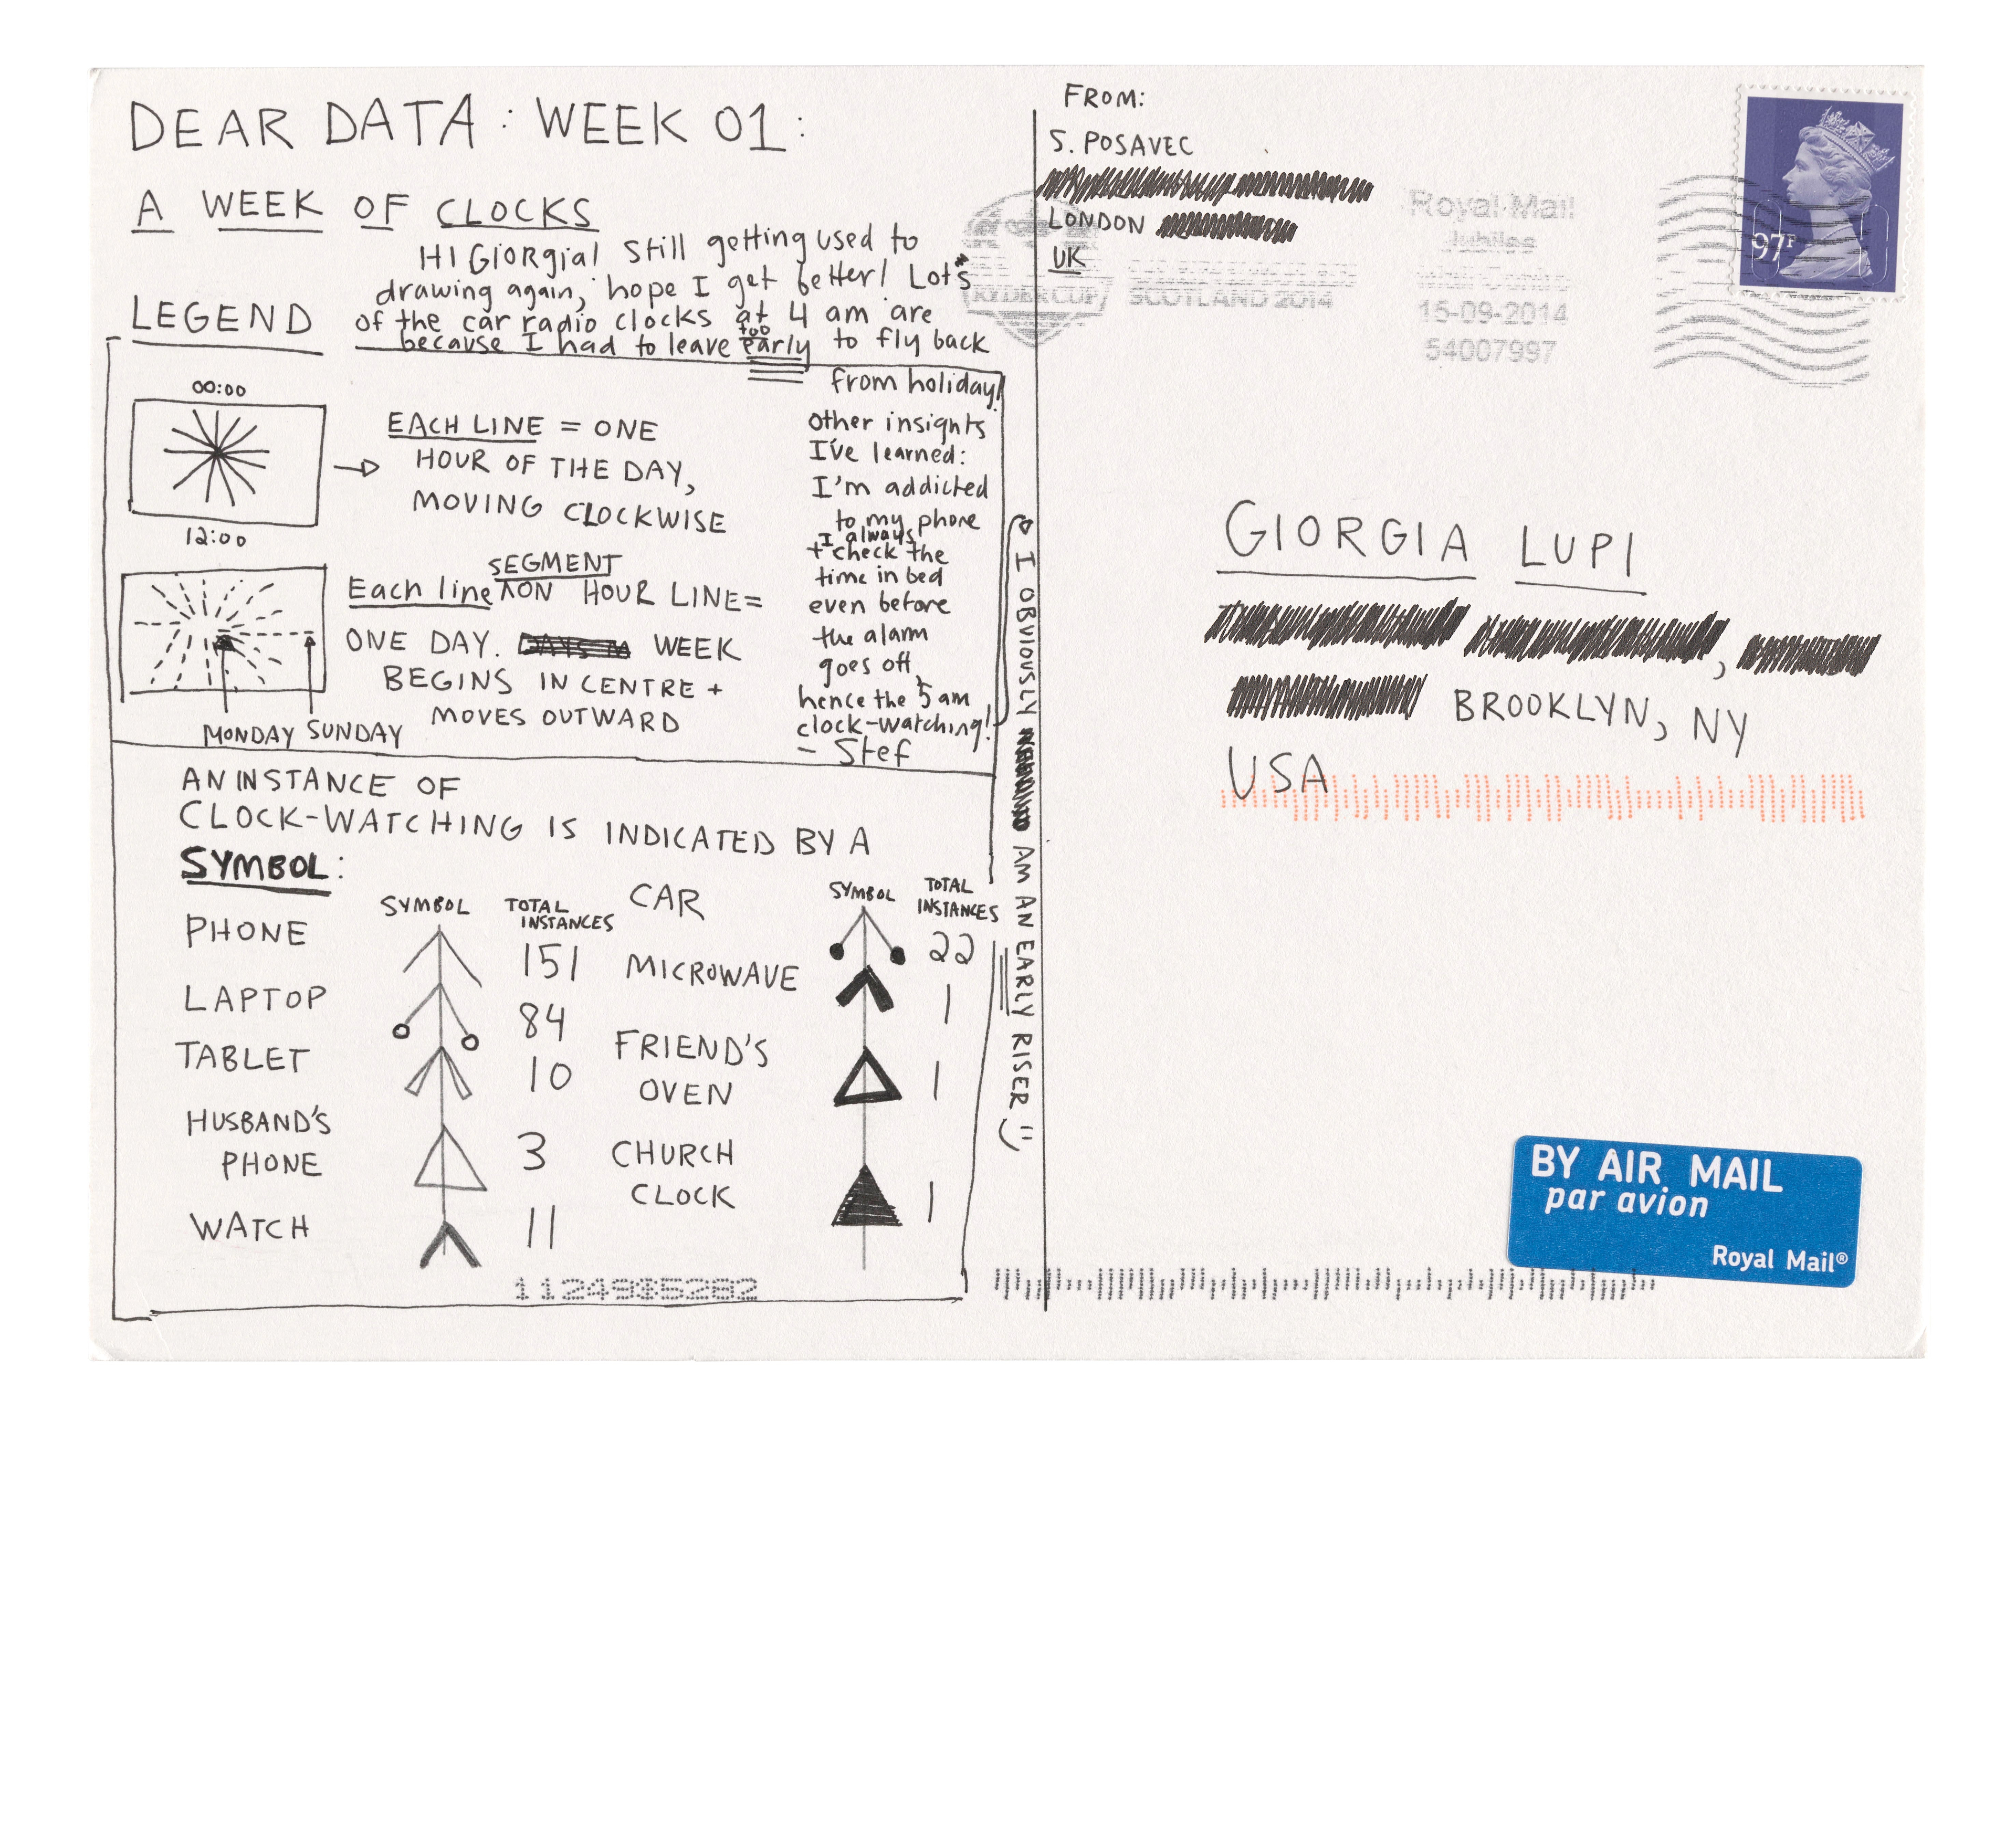 DEAR DATA: WEEK 01:
A WEEK OF CLOCKS
HI GiORgia! Still getting used to
drawing again, hope I get better! Lots
of the car radio clocks at 4 am are
because I had to leave too early to fly back
from holiday!
Other insights
I've learned:
I'm addicted
to my phone
+ I always check the
time in bed
even before
the alarm
goes off,
hence the 5 am
clock-watching!
- Stef
I OBVIOUSLY AM AN EARLY RISER
LEGEND
00:00
12:00
EACH LINE = ONE
HOUR OF THE DAY,
MOVING CLOCKWISE
Each line SEGMENT ON HOUR LINE=
ONE DAY. WEEK
BEGINS IN CENTRE +
MOVES OUTWARD
MONDAY SUNDAY
AN INSTANCE OF
CLOCK-WATCHING IS INDICATED BY A
SYMBOL:
SYMBOL TOTAL INSTANCES
PHONE 151
LAPTOP 84
TABLET 10
HUSBAND'S
PHONE 3
WATCH 11
SYMBOL TOTAL INSTANCES
CAR 22
MICROWAVE 1
FRIEND'S
OVEN 1
CHURCH
CLOCK 1
11249$5282
FROM:
S. POSAVEC
LONDON
UK
RYDER CUP
SCOTLAND 2014
Royal Mail
Jubilee
Mail Centre
15-09-2014
54007997
97P
GIORGIA LUPI
BROOKLYN, NY
USA
BY AIR MAIL
par avion
Royal Mail®